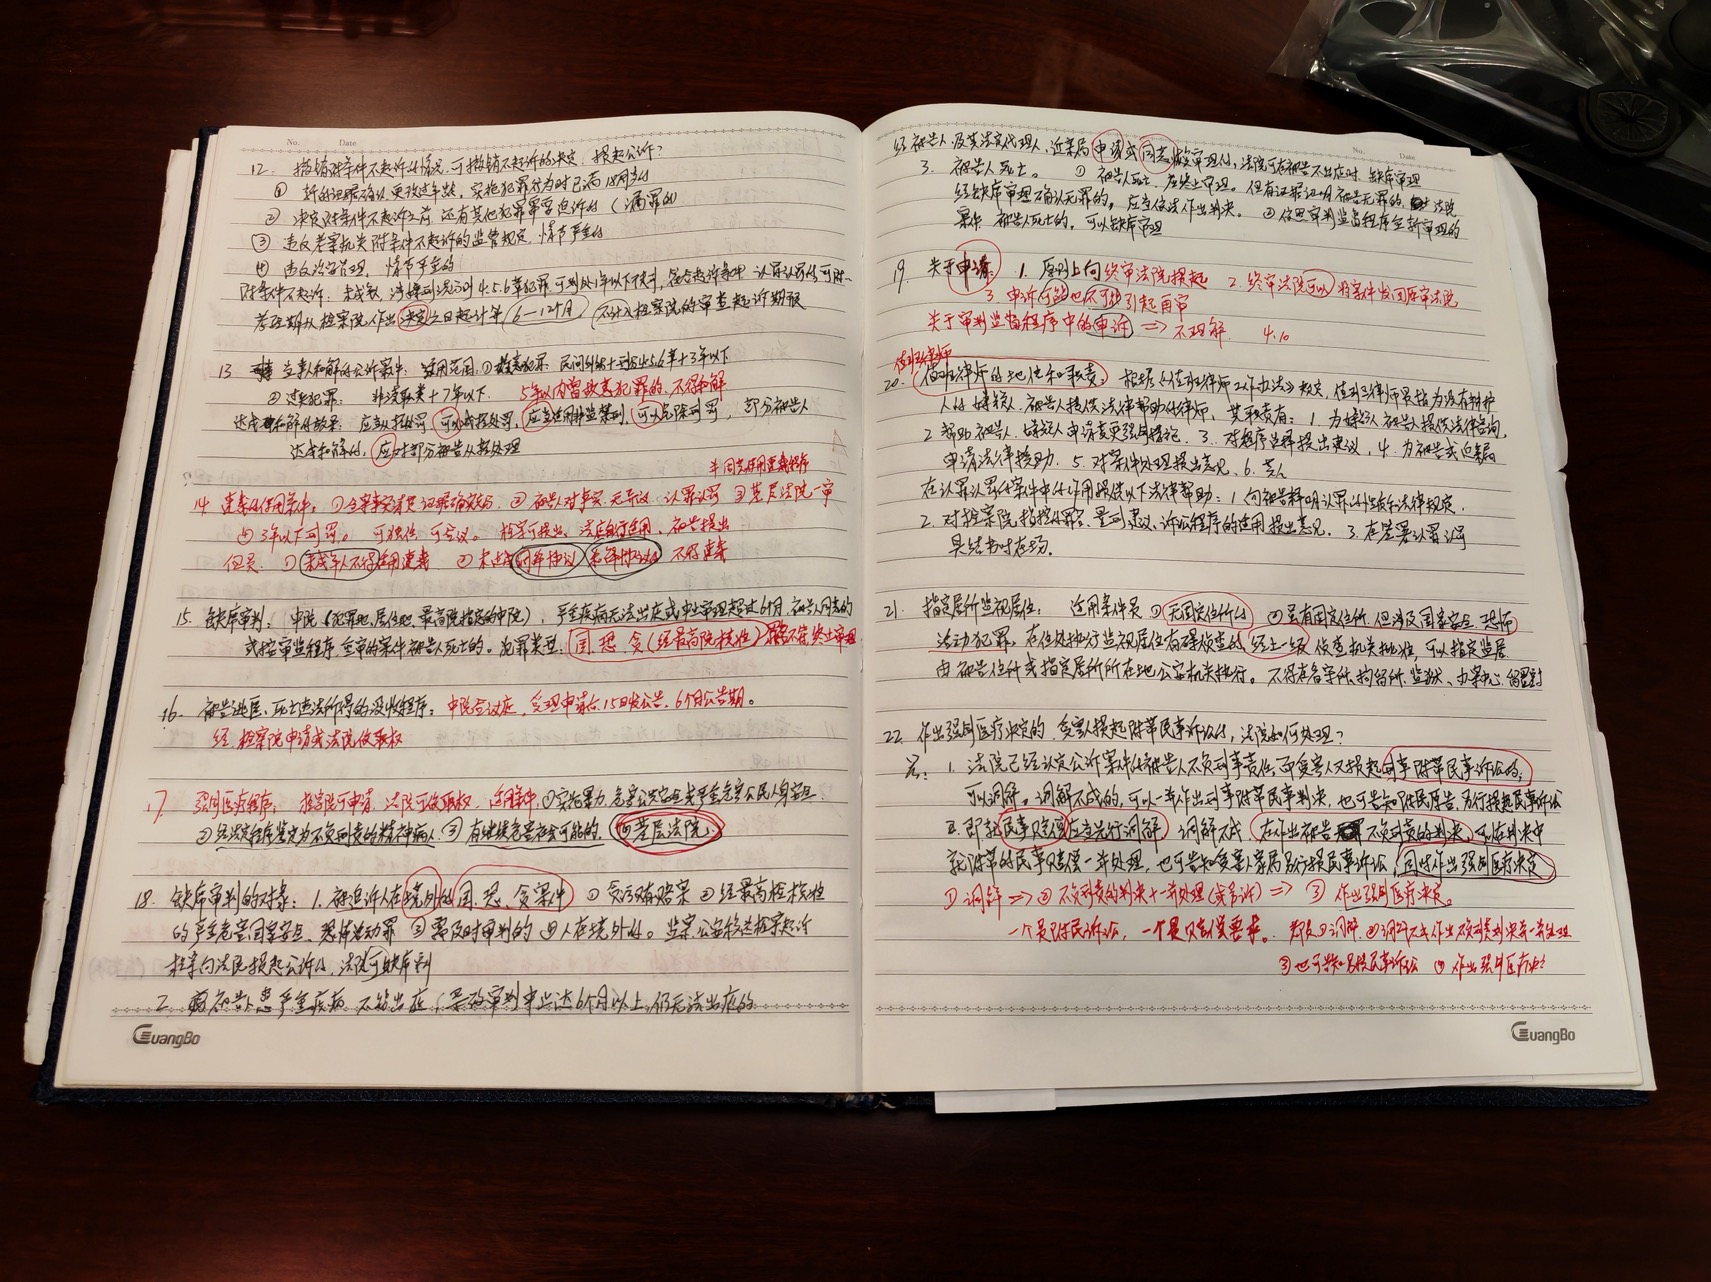 No. Date
12. 撤销附条件不起诉的情况,可撤销不起诉的决定,提起公诉?
① 新的证据确认更改过年龄,实施犯罪行为时已满18周岁的
② 决定附条件不起诉之前还有其他犯罪需要追诉的(漏罪的)
③ 违反考察机关附条件不起诉的监管规定,情节严重的
④ 违反治安管理,情节严重的
附条件不起诉:未成年,涉嫌刑法分则4.5.6章犯罪,可判处1年以下徒刑,符合起诉条件 认罪认罚的可附
考验期从检察院作出决定之日起计算(6—12个月)(不计入检察院的审查起诉期限
13 当事人和解的公诉案件:适用范围:①故意犯罪 民间纠纷+刑分4.5.6章+3年以下
② 过失犯罪: 非渎职类+7年以下. 5年以内曾故意犯罪的,不得和解
达成和解的效果:应当从轻处罚,可以减轻处罚,应当适用非监禁刑,可以免除刑罚, 部分被告人
达成和解的,应对部分被告从轻处理
并同意适用速裁程序
14 速裁的使用条件:①全案事实清楚 证据确实充分 ②被告人对事实无异议 认罪认罚 ③基层法院一审
④3年以下刑罚。 可独任 可合议。 检察可提出、法院自行适用、被告提出
但是:①未成年人不得适用速裁 ②未达成调解协议 和解协议的 不得速裁
15. 缺席审判: 中院(犯罪地.居住地.最高院指定的中院), 严重疾病无法出庭或中止审理超过6个月,被告人同意的
或按审监程序重审的案件被告人死亡的。犯罪类型:国、恐、贪(经最高院核准)
16. 被告逃匿、死亡违法所得的没收程序:中院合议庭,受理申请后15日发公告,6个月公告期。
经检察院申请或法院依职权
17 强制医疗程序: 检察院可申请,法院可依职权,适用条件:①实施暴力,危害公共安全或严重危害公民人身安全.
②经法定程序鉴定为不负刑责的精神病人 ③有继续危害社会可能的 ④基层法院
18. 缺席审判的对象:1.被追诉人在境外的国、恐、贪案件 ①贪污贿赂案 ②经最高检核准
的严重危害国家安全、恐怖活动罪 ③需及时审判的 ④人在境外的。监察公安移送检察起诉
检察向法院提起公诉的,法院可缺席判
2. 被告人患严重疾病 不能出庭,导致审判中止达6个月以上,仍无法出庭的
GuangBo
No. Date
经被告人及其法定代理人、近亲属申请或同意恢复审理的,法院可在被告不出庭时,缺席审理
3. 被告人死亡。 ①被告人死亡,应终止审理。但有证据证明被告无罪的,法院
经缺席审理确认无罪的,应当依法作出判决。②依照审判监督程序重新审理的
案件 被告人死亡的,可以缺席审理
19. 关于申请: 1. 原则上向终审法院提起 2. 终审法院可以将案件发回原审法院
3. 申诉可能也不可能引起再审
关于审判监督程序中的申诉 => 不理解. 4.10
值班律师
20. 值班律师的地位和职责: 根据《值班律师工作办法》规定,值班律师是指为没有辩护
人的嫌疑人.被告人提供法律帮助的律师,其职责有:1. 为嫌疑人被告人提供法律咨询,
2 帮助被告人.嫌疑人申请变更强制措施. 3. 对程序选择提出建议, 4. 为被告或近亲属
申请法律援助. 5. 对案件处理提出意见. 6. 其他
在认罪认罚的案件中的作用提供以下法律帮助:1. 向被告释明认罪的性质和法律规定.
2. 对检察院指控的罪名、量刑建议、诉讼程序的适用提出意见. 3. 在签署认罪认罚
具结书时在场.
21. 指定居所监视居住: 适用条件是①无固定住所的 ②虽有固定住所,但涉及国家安全.恐怖
活动犯罪,在住处执行监视居住有碍侦查的,经上一级侦查机关批准,可以指定监居
由被告住所或指定居所所在地公安机关执行。不得在看守所.拘留所.监狱、办案中心.留置室
22. 作出强制医疗决定的,受害人提起附带民事诉讼的,法院如何处理?
答: 1. 法院已经认定公诉案件的被告人不负刑事责任,而受害人又提起刑事附带民事诉讼的,
可以调解,调解不成的,可以一并作出刑事附带民事判决,也可告知附民原告另行提起民事诉讼
应当先行调解 调解不成 在作出被告不负刑责的判决,可在判决中
就附带的民事赔偿一并处理,也可告知受害人家属另行提民事诉讼,同时作出强制医疗决定
①调解 => ②不负刑责的判决+一并处理(或另诉) => ③ 作出强制医疗决定。
一个是附民诉讼,一个是赔偿要求。 都是①调解 ②调解不成作出不负刑责判决并一并处理
③也可告知另提民事诉讼 ④作出强制医疗决定
GuangBo